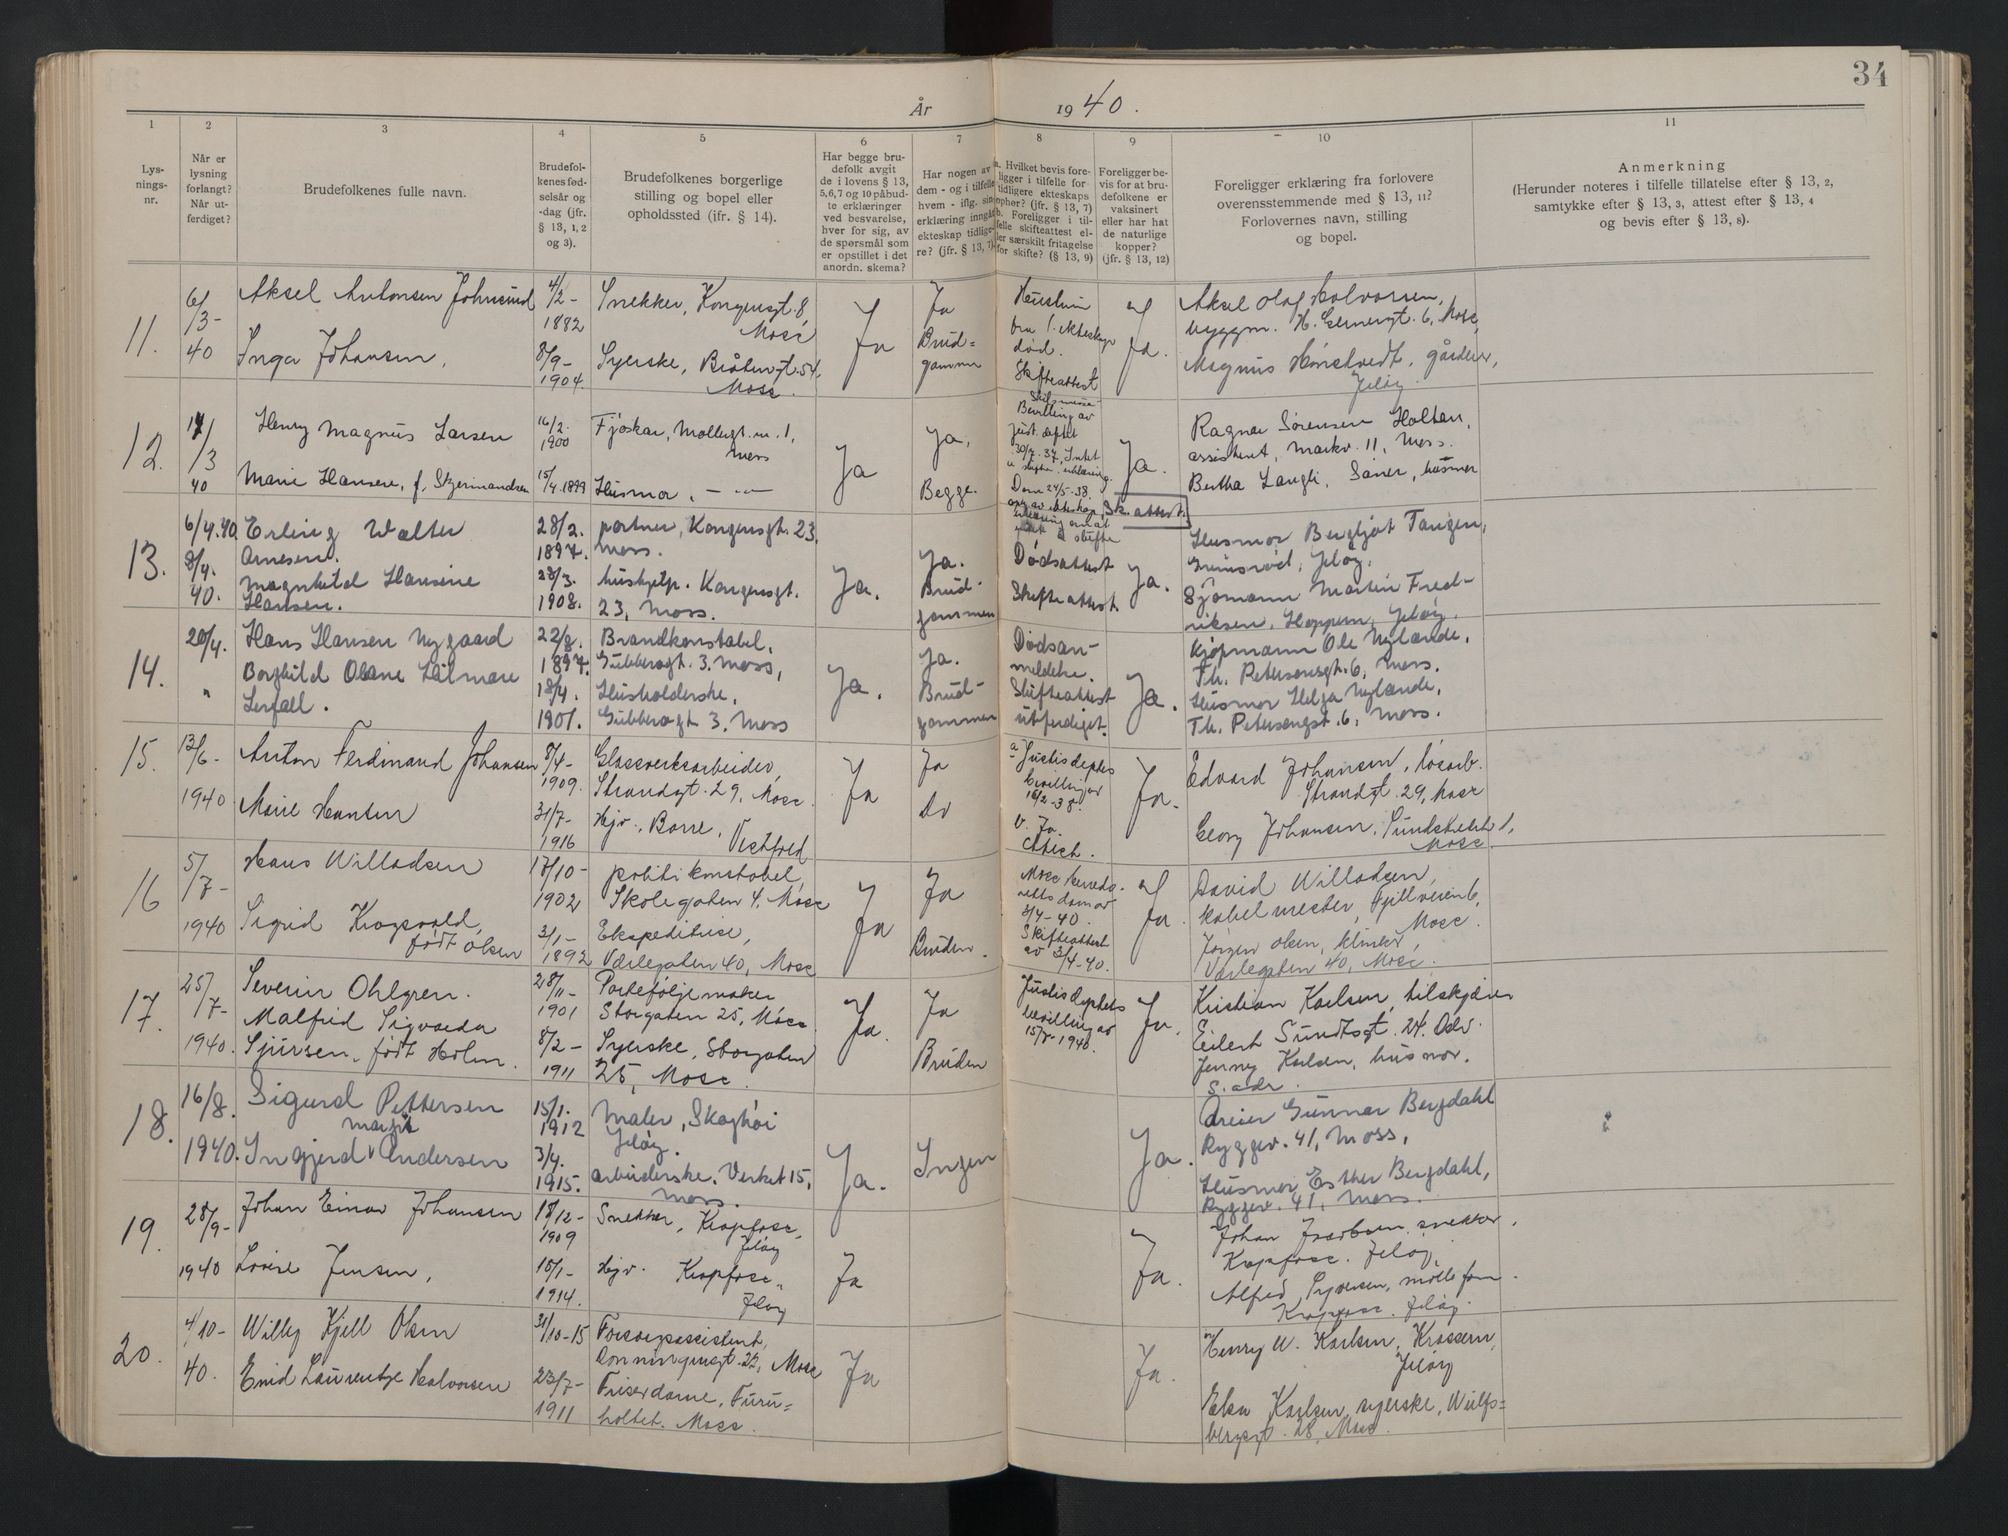 34
År 1940.
1 2 3 4 5 6 7 8 9 10 11
Lys-
nings-
nr.
Når er
lysning
forlangt?
Når ut-
ferdiget?
Brudefolkenes fulle navn.
Brudefol-
kenes fød-
selsår og
-dag (jfr.
§ 13, 1, 2
og 3).
Brudefolkenes borgerlige
stilling og bopel eller
opholdssted (jfr. § 14).
Har begge bru-
defolk avgit
de i lovens § 13,
5,6,7 og 10 påbud-
te erklæringer
ved besvarelse,
hver for sig, av
de spørsmål som
er opstillet i det
anordn. skema?
Har nogen av
dem - og i tilfelle
hvem - iflg. sin
erklæring inngått
ekteskap tidlige-
re? (jfr. § 13, 7).
a. Hvilket bevis fore-
ligger i tilfelle for
tidligere ekteskaps
ophør? (jfr. § 13, 7)
b. Foreligger i til-
felle skifteattest el-
ler særskilt fritagelse
for skifte? (§ 13, 9)
Foreligger be-
vis for at bru-
defolkene er
vaksinert
eller har hat
de naturlige
kopper?
(jfr. § 13, 12)
Foreligger erklæring fra forlovere
overensstemmende med § 13, 11?
Forlovernes navn, stilling
og bopel.
Anmerkning
(Herunder noteres i tilfelle tillatelse efter § 13, 2,
samtykke efter § 13, 3, attest efter § 13, 4
og bevis efter § 13, 8).
11.
6/
3-
40
Aksel Antonsen Johnsrud
Inga Johansen,
4/2-
1882
8/9-
1904
Snekker, Kongensgt. 8,
Moss
Syerske, Bråtengt. 54,
Moss.
Ja
Ja
Brud-
gommen
Hustru
fra 1. ekteskap
død.
Skifteattest
Ja.
Aksel Olof Halvorsen,
byggm. H. Gernersgt. 6, Moss,
Magnus gårdeier,
Jeløy
12.
/3
40
Henry Magnus Larsen
Marie Hansen, f. Skjermandsen
16/2.
1900
15/
4.1899
Fjøskar, Møllergt. nr. 1,
Moss
Husmor, — " —
Ja
Ja,
Begge.
Bevilling av
just. deptet
30/4. 37.
Dom 24/5-38,
Sk. attest.
Ja.
Ragnar Sørensen Holten,
assistent, Markv. 11, Moss.
Bertha Langli, Såner, husmor
13.
6/4.40.
8/4.
40.
Erling Walter
Arnesen.
Magnhild Hansine
Hansen.
28/2.
1897.
23/3.
1908.
portner, Kongensgt. 23,
Moss.
hushjelp. Kongensgt.
23, Moss.
Ja.
Ja.
Brud-
gommen
Dødsattest
Skifteattest
Ja.
Husmor Bergljot Tangen,
Grimsrød, Jeløy.
Sjømann Martin Fred-
riksen, Hoppern, Jeløy.
14.
20/4.
"
Hans Hansen Nygaard
Borghild Oline Hilmare
Lerfall.
22/8.
1897.
18/4.
1901.
Brandkonstabel,
Gubberogt. 3. Moss,
Husholderske,
Gubberogt. 3. Moss
Ja.
Ja.
Brud-
gommen
Dødsan-
meldelse.
Skifteattest
utferdiget.
Ja.
Kjøpmann Ole Nylande,
Th. Petersensgt. 6, Moss.
Husmor Helga Nylande,
Th. Petersengst. 6, Moss.
15.
13/6-
1940
Anton Ferdinand Johansen
Marie Hansen
8/4-
1909.
31/7-
1916
Glassverksarbeider,
Strandgt. 29, Moss.
Hjv., Borre, Vestfold
Ja
Ja
Do
a Justisdeptes
bevilling av
16/2-38.
b. Ja.
Attest.
Ja.
Edvard Johansen, løsarb.
Strandgt. 29, Moss
Georg Johansen, 1,
Moss.
16
5/
7-
1940
Hans Willadsen
Sigrid Kragsvold,
født Olsen
17/10-
1902
3/1-
1892
politikonstabel,
Skolegaten 4, Moss
Ekspeditrise,
Varlegaten 40, Moss
Ja
Ja
Bruden.
Moss herreds-
retts dom av
3/4-40.
Skifteattest
av 3/4-40.
Ja.
David Willadsen,
kabelmester, Fjellveien 6,
Moss.
Jørgen Olsen,
Varlegaten 40, Moss.
17.
25/
7-
1940.
Severin Ohlgren.
Malfrid Sigvarda
Sjursen, født Holm.
28/11-
1901
8/2-
1911
Portefølje maker
Storgaten 25, Moss.
Syerske, Storgaten
25, Moss.
Ja.
Ja
Bruden
Justisdeptets
bevilling av
15/7-1940.
Ja.
Kristian Karlsen, tilskjærer
Eilert Sundtsgt. 24. Oslo.
Jenny Karlsen, husmor.
S. adr.
18.
16/8.
1940.
Sigurd Pettersen
Margit
Ingjerd Andersen
15/1.
1912
3/4.
1915.
Maler, Skoghøi
Jeløy.
Arbeiderske, Verket 15,
Moss.
Ja.
Ingen
Ja.
Dreier Gunnar Bergdahl
Ryggev. 41, Moss,
Husmor Esther Bergdahl,
Ryggev. 41, Moss.
19.
28/9-
1940
Johan Einar Johansen
Lovise Jensen,
18/12-
1909
15/1-
1914.
Snekker, Krapfoss,
Jeløy
Hjv. Krapfoss,
Jeløy
Ja
Ja.
Johan snekker,
Krapfoss. Jeløy
Alfred Syversen,
Krapfoss. Jeløy.
20.
4/10-
40.
Willy Kjell Olsen
Enid Laurentze Halvorsen
31/10-15
23/7-
1911
Forsorgsassistent,
Dronningensgt. 22, Moss
Friserdame, Furu-
holtet. Moss.
Ja
Ja.
Henry W. Karlsen, Krossern,
Jeløy
Elsa Karlsen, syerske, Wulfs-
bergsgt. 28, Moss.